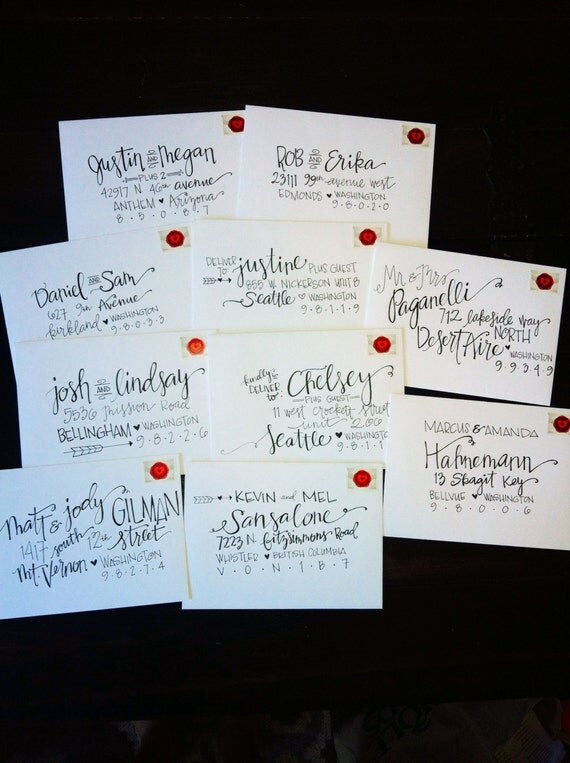 Justin AND Megan
PLUS 2
42917 N 46th avenue
ANTHEM ♥ Arizona
8 • 5 • 0 • 8 • 7
ROB AND Erika
23111 99th avenue west
EDMONDS ♥ WASHINGTON
9 • 8 • 0 • 2 • 0
Daniel AND Sam
627 9th Avenue
Kirkland ♥ WASHINGTON
9 • 8 • 0 • 3 • 3
DELIVER TO: justine PLUS GUEST
855 W. NICKERSON UNIT B
Seattle ♥ WASHINGTON
9 • 8 • 1 • 1 • 9
Mr & Mrs
Paganelli
712 lakeside way
NORTH
Desert Aire ♥ WASHINGTON
9 • 9 • 3 • 4 • 9
josh AND lindsay
5536 Mission Road
BELLINGHAM ♥ WASHINGTON
9 • 8 • 2 • 2 • 6
kindly DELIVER TO: Chelsey
PLUS GUEST
11 west crockett street
unit 206
Seattle ♥ WASHINGTON
9 • 8 • 1 • 1
MARCUS & AMANDA
Hahnemann
13 Skagit Key
BELLVUE ♥ WASHINGTON
9 • 8 • 0 • 0 • 6
Matt & jody GILMAN
1417 south 12th street
Mt. Vernon ♥ WASHINGTON
9 • 8 • 2 • 7 • 4
KEVIN and MEL
Sansalone
7223 N Fitzsimmons Road
WHISTLER ♥ BRITISH COLUMBIA
V • 0 • N • 1 • B • 7